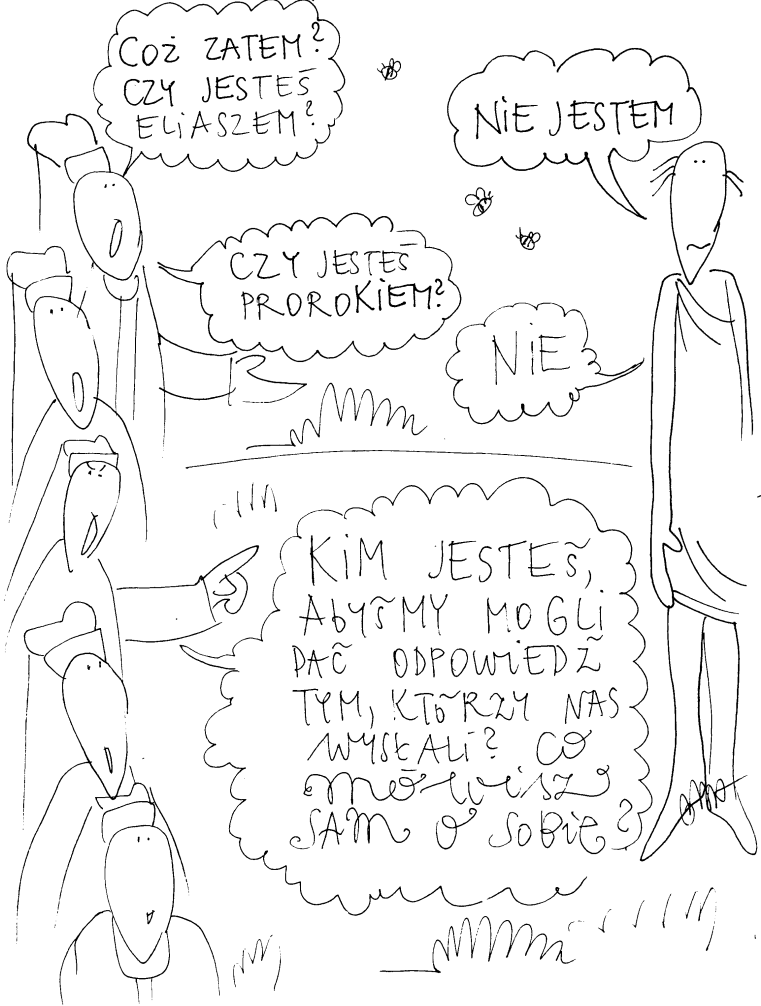 COŻ ZATEM?
CZY JESTEŚ
ELiASZEM?
NiE JESTEM
CZY JESTEŚ
PROROKiEM?
NiE
KiM JESTEŚ,
AbYŚMY MOGLi
DAĆ ODPOWiEDŹ
TYM, KTÓRZY NAS
WYSŁALi? CO
mówisz
SAM O SOBiE?